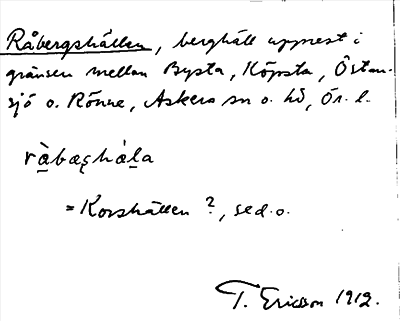 Råbergshällen, berghäll uppnest i
gränsen mellan Bysta, Köpsta, Östan-
sjö o. Rönne, Askers sn o. hd, Ör. l.
ràbæʂhàla
= Korshällen ?, se d. o.
T. Ericsson 1912.